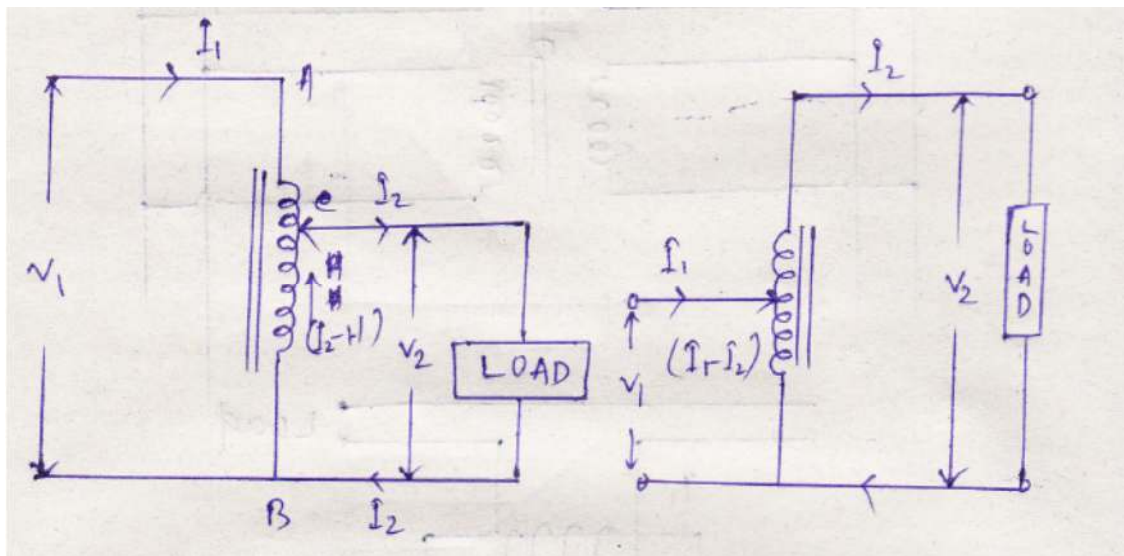 I₁
A
V₁
C I₂
(I₂-I₁)
V₂
LOAD
B
I₂
I₂
I₁
V₁
(I₁-I₂)
V₂
LOAD